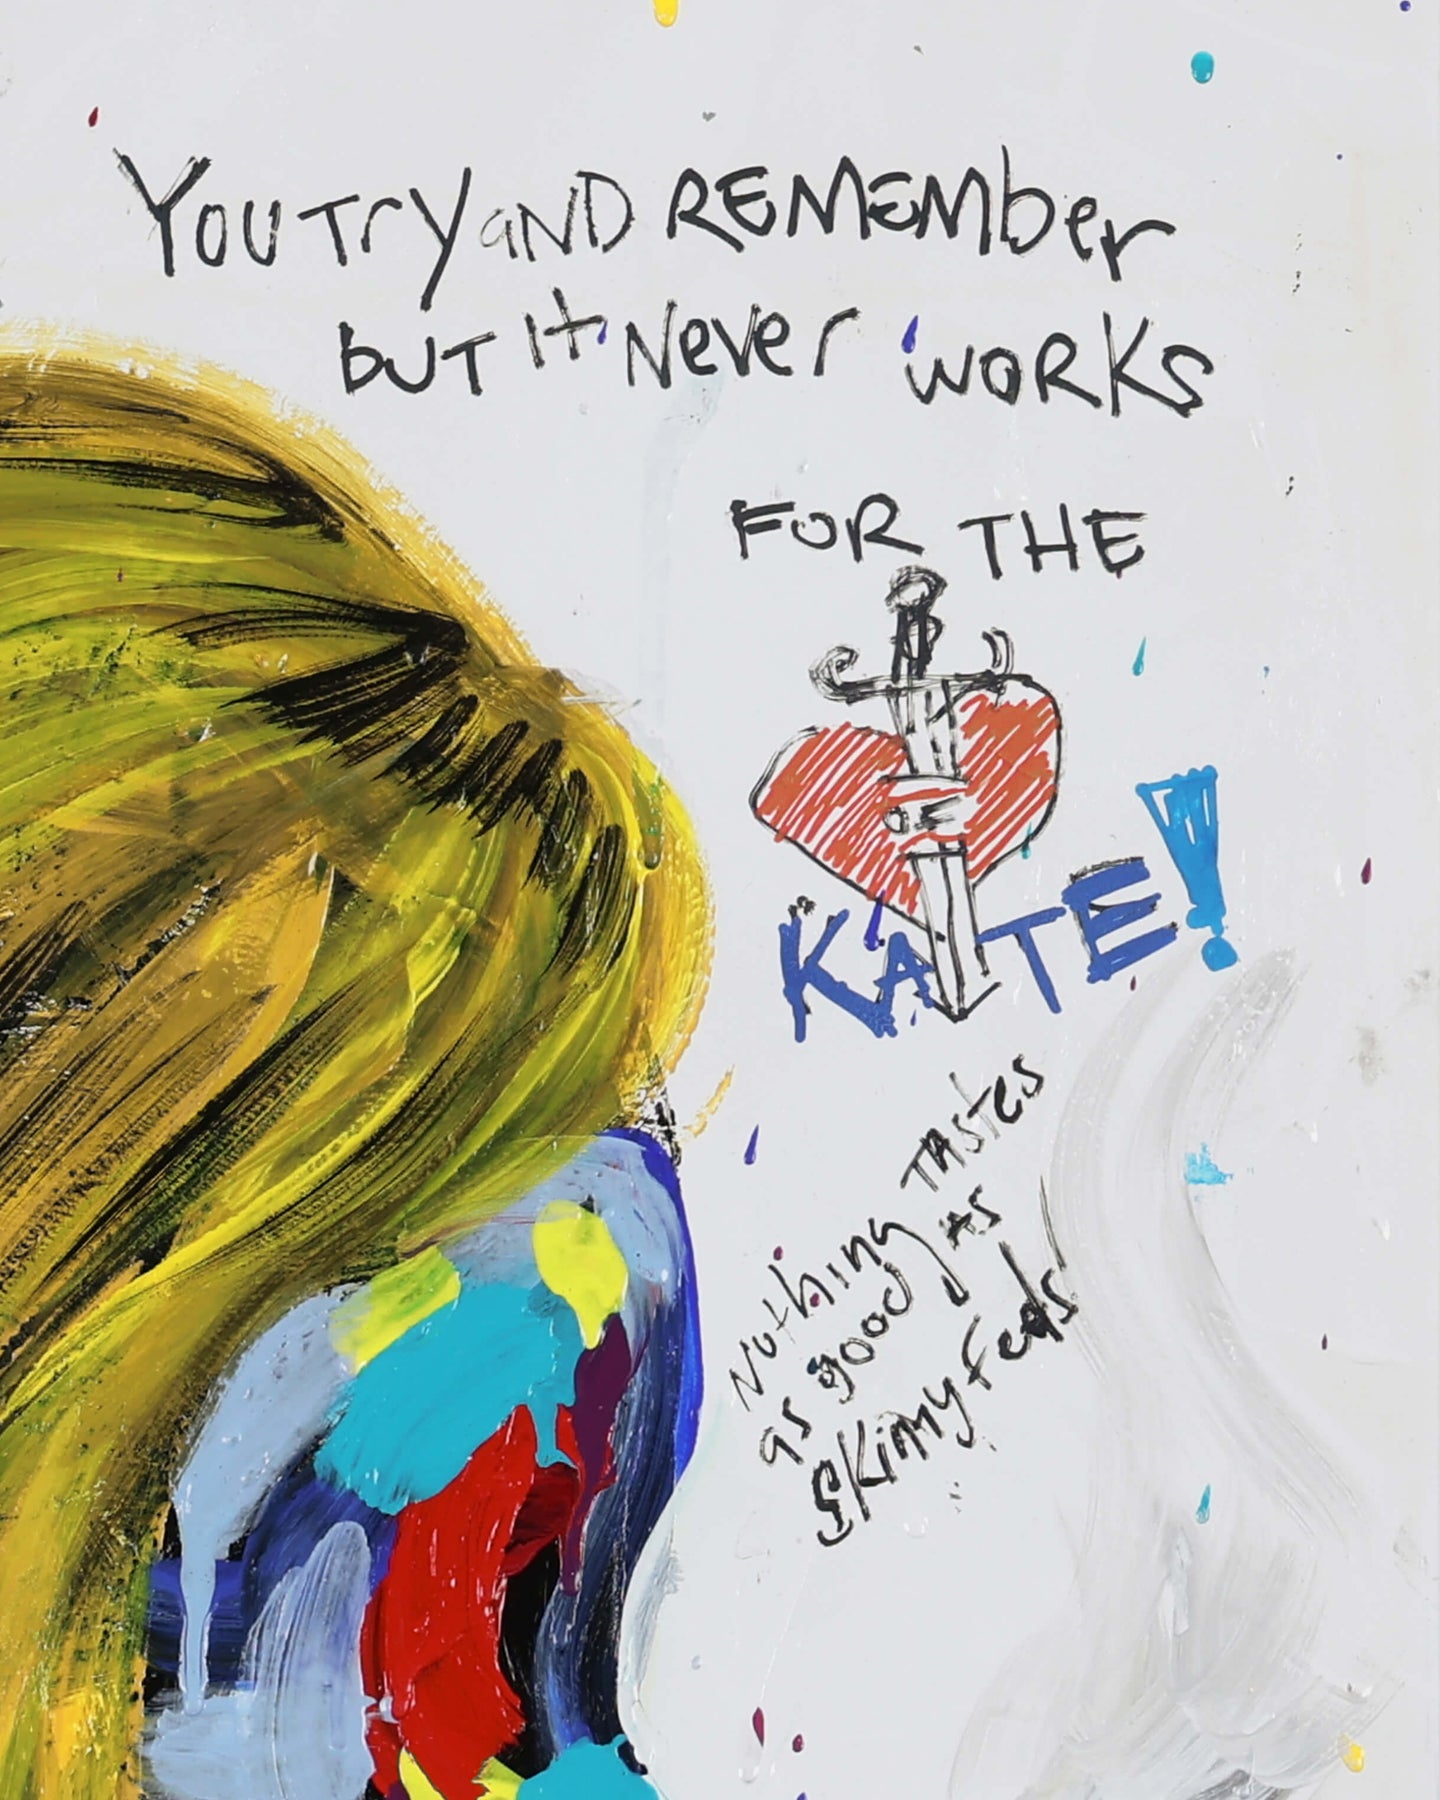 You Try aND REMEMber
BUT It Never WORKS
FOR THE
KATE!
Nothing TAstes
as good AS
SKinny Feels